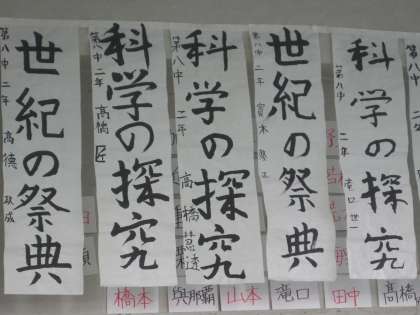 科学の探究
第八中 二年 滝口
世紀の祭典
第八中 二年
科学の探究
第八中 二年 高橋
科学の探究
第八中 二年 高橋 匠
世紀の祭典
第八中 二年 高德
橋本
與那覇
山本
滝口
田中
髙橋